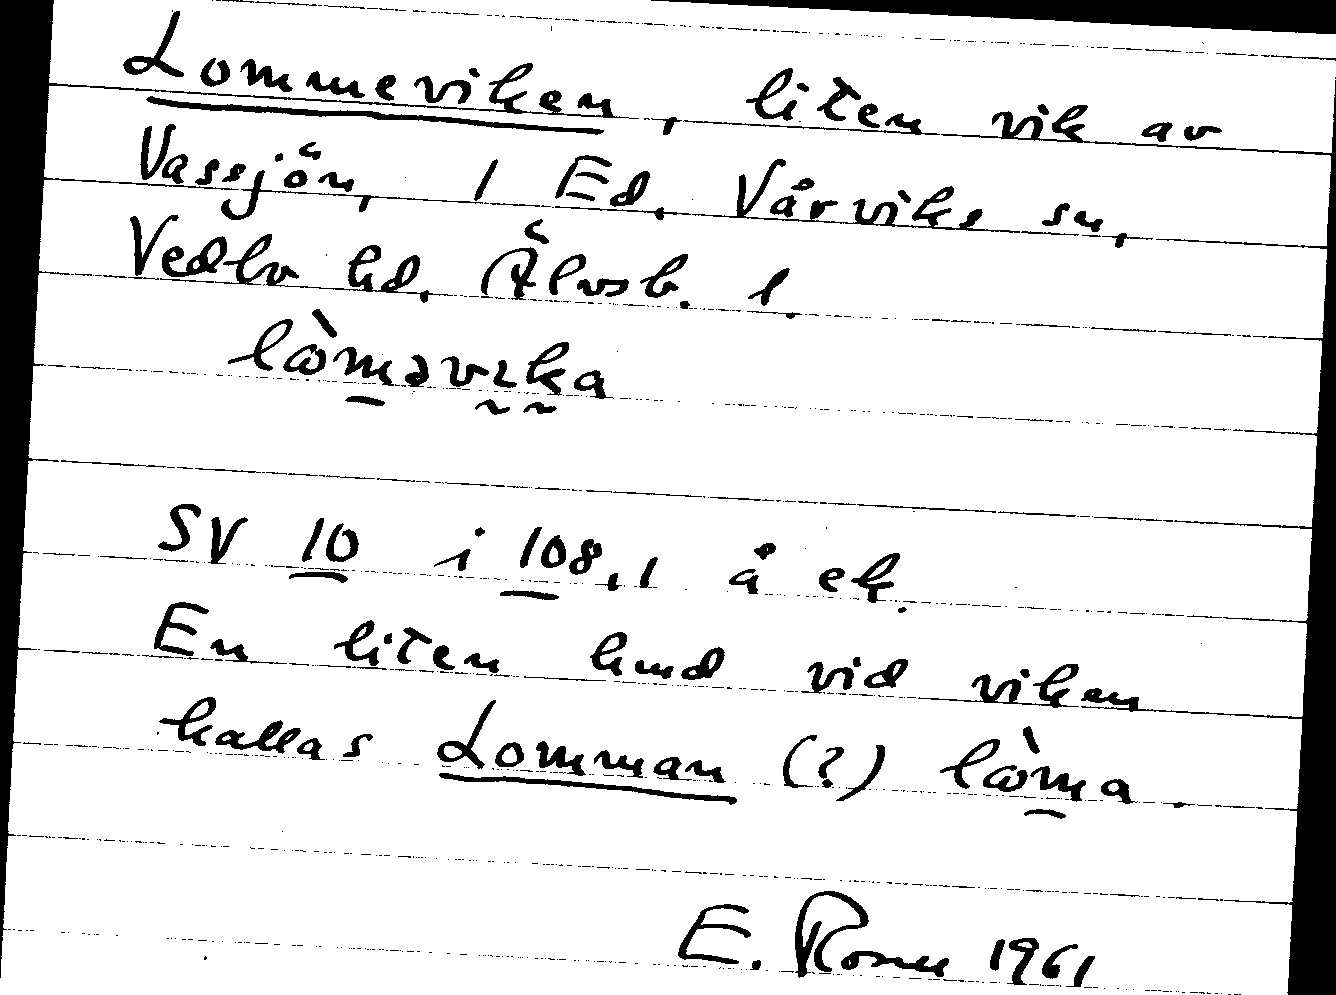 Lommeviken, liten vik av
Vassjön, 1 Ed. Vårviks sn,
Vedbo hd. Älvsb. l.
lòməvɩka
SV 10 i 108,1 å ek.
En liten lund vid viken
kallas Lomman (?) lòma.
E. Rosne 1961